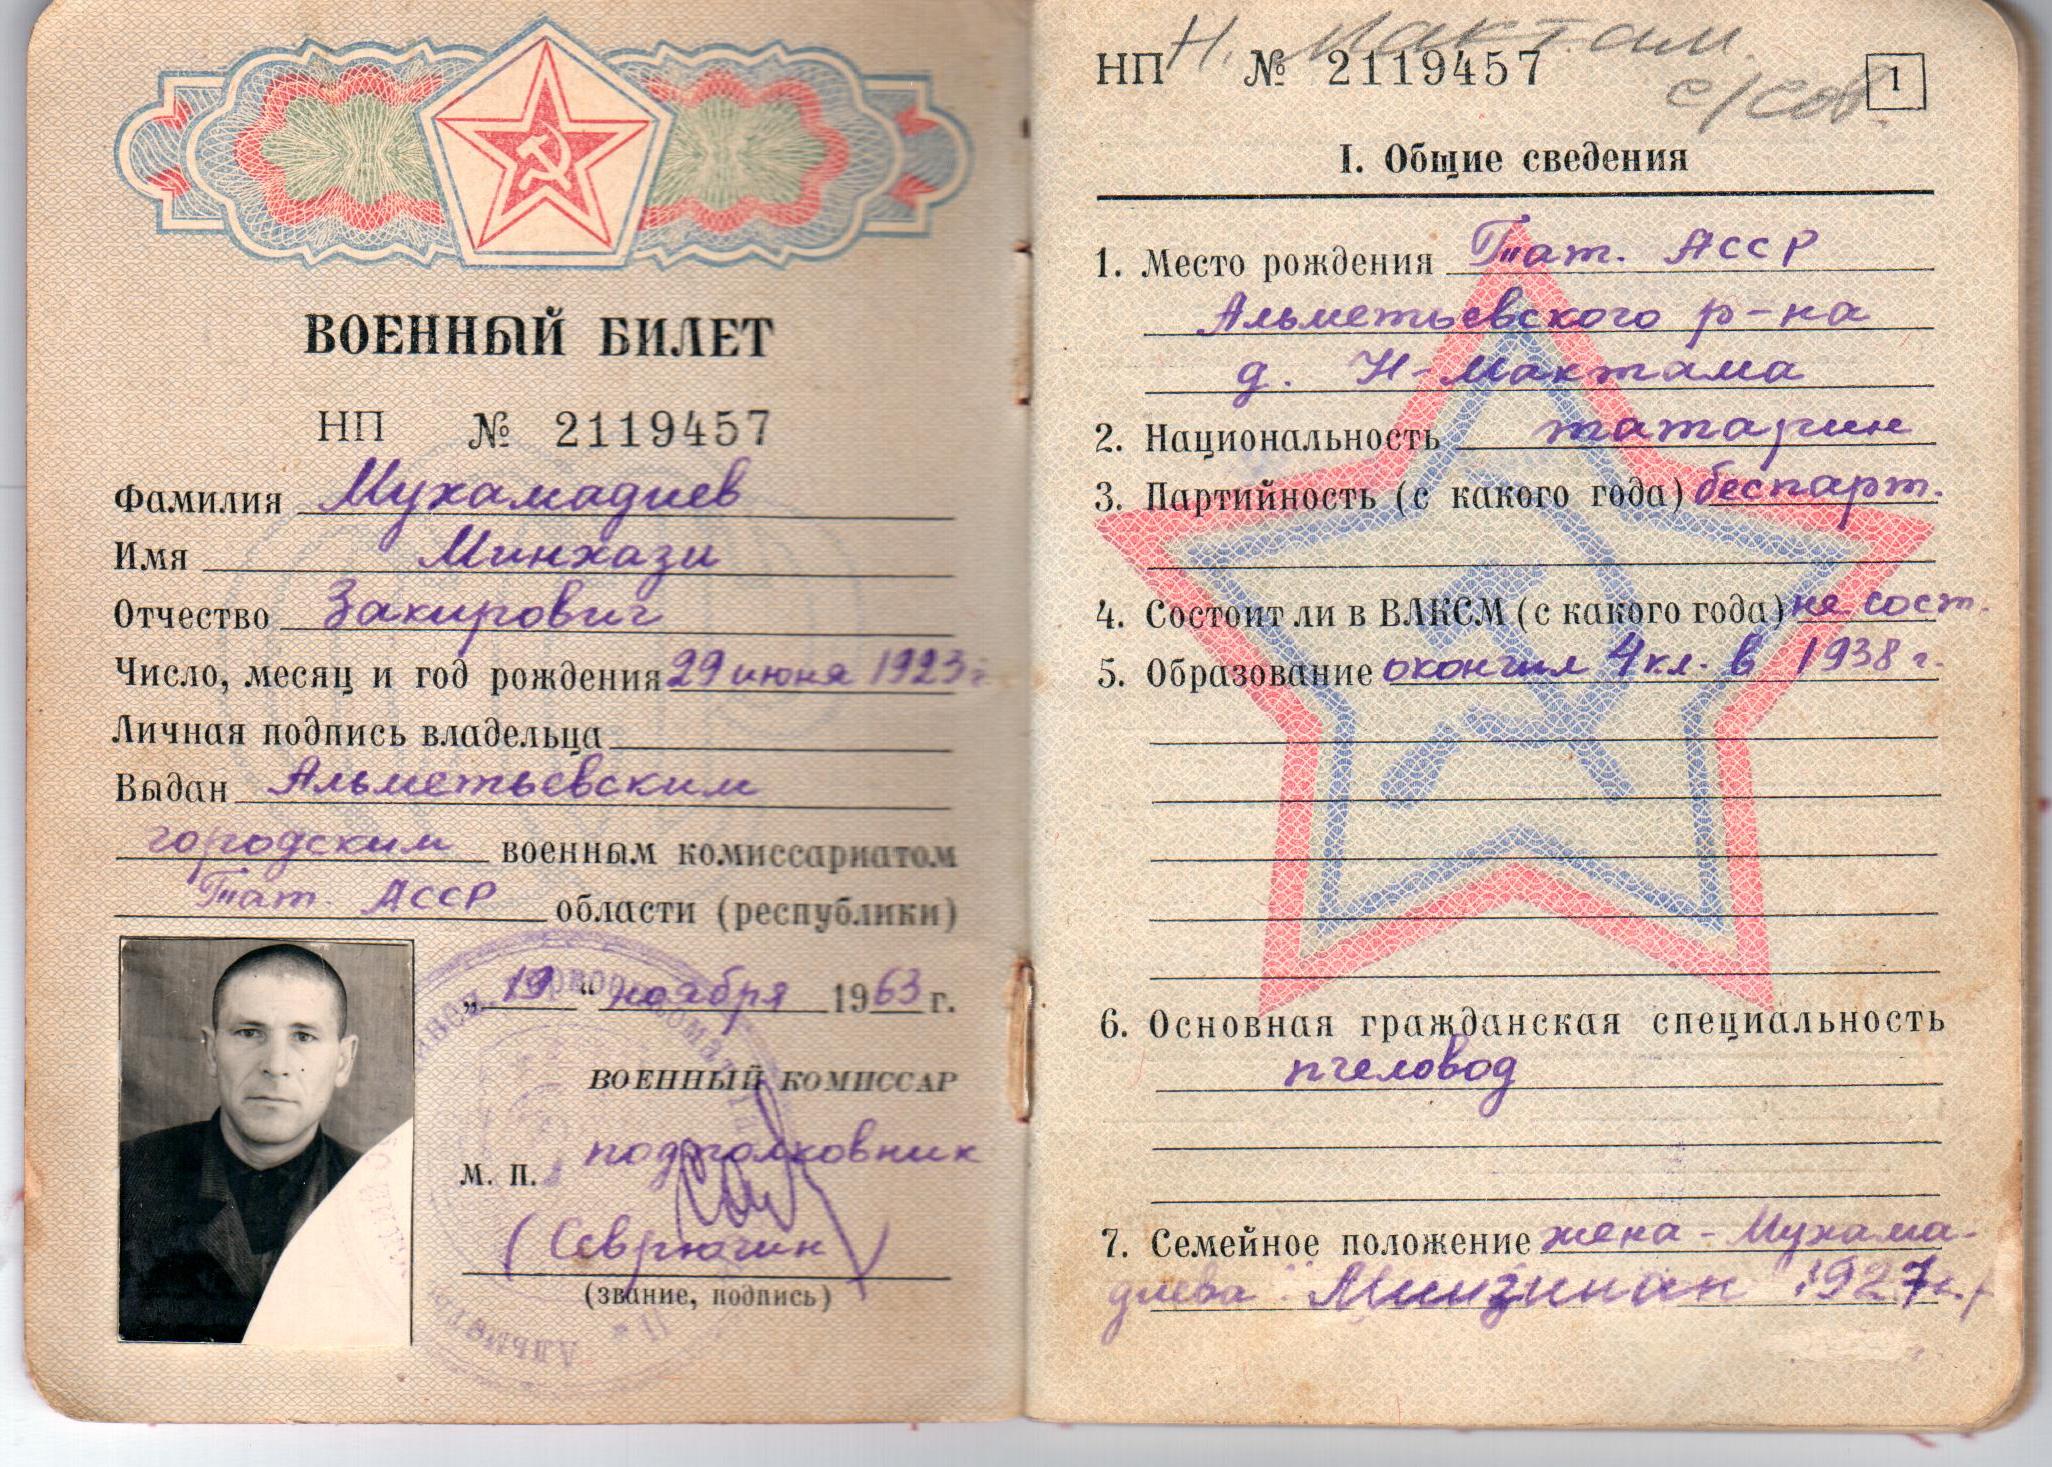 ВОЕННЫЙ БИЛЕТ
НП № 2119457
Фамилия Мухамадиев
Имя Минхази
Отчество Закирович
Число, месяц и год рождения 29 июня 1923 г
Личная подпись владельца
Выдан Альметьевским
городским военным комиссариатом
Тат. АССР области (республики)
„19“ ноября 1963 г.
ВОЕННЫЙ КОМИССАР
подполковник
М. П.
(Севрючин)
(звание, подпись)
Н. Мактам
НП № 2119457
с/сов.
1
I. Общие сведения
1. Место рождения Тат. АССР
Альметьевского р-на
д. Н-Мактама
2. Национальность татарин
3. Партийность (с какого года) беспарт.
4. Состоит ли в ВЛКСМ (с какого года) не сост.
5. Образование окончил 4 кл. в 1938 г.
6. Основная гражданская специальность
пчеловод
7. Семейное положение жена - Мухама-
диева 1927